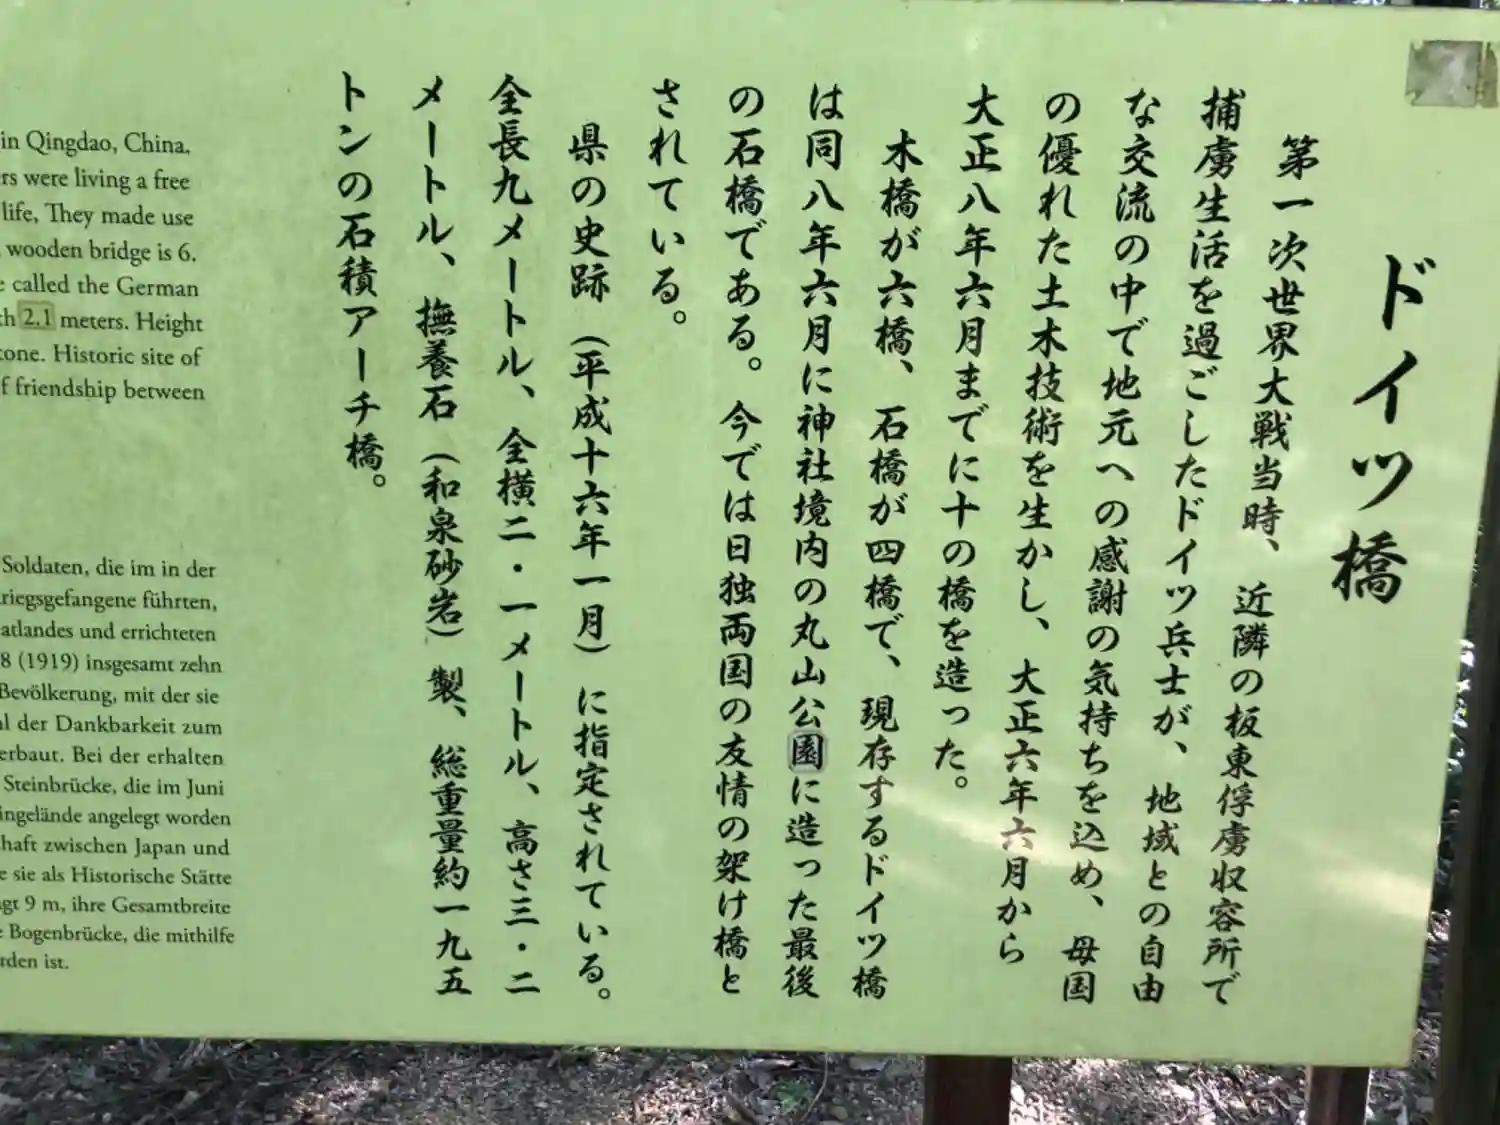 ドイツ橋
第一次世界大戦当時、近隣の板東俘虜収容所で
捕虜生活を過ごしたドイツ兵士が、地域との自由
な交流の中で地元への感謝の気持ちを込め、母国
の優れた土木技術を生かし、大正六年六月から
大正八年六月までに十の橋を造った。
木橋が六橋、石橋が四橋で、現存するドイツ橋
は同八年六月に神社境内の丸山公園に造った最後
の石橋である。今では日独両国の友情の架け橋と
されている。
県の史跡(平成十六年一月)に指定されている。
全長九メートル、全横二・一メートル、高さ三・二
メートル、撫養石(和泉砂岩)製、総重量約一九五
トンの石積アーチ橋。
in Qingdao, China.
rs were living a free
life, They made use
wooden bridge is 6.
e called the German
th 2.1 meters. Height
tone. Historic site of
f friendship between
Soldaten, die im in der
riegsgefangene führten,
atlandes und errichteten
8 (1919) insgesamt zehn
Bevölkerung, mit der sie
l der Dankbarkeit zum
erbaut. Bei der erhalten
Steinbrücke, die im Juni
ingelände angelegt worden
haft zwischen Japan und
e sie als Historische Stätte
gt 9 m, ihre Gesamtbreite
e Bogenbrücke, die mithilfe
rden ist.